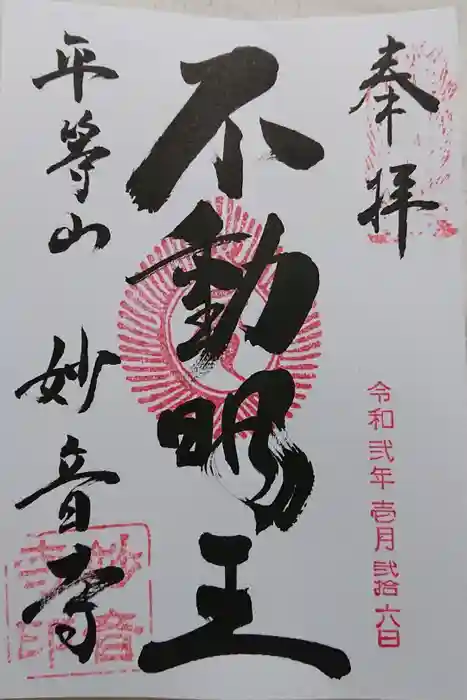 奉拝
令和弐年壱月弐拾六日
不動明王
平等山 妙音寺
妙音寺印